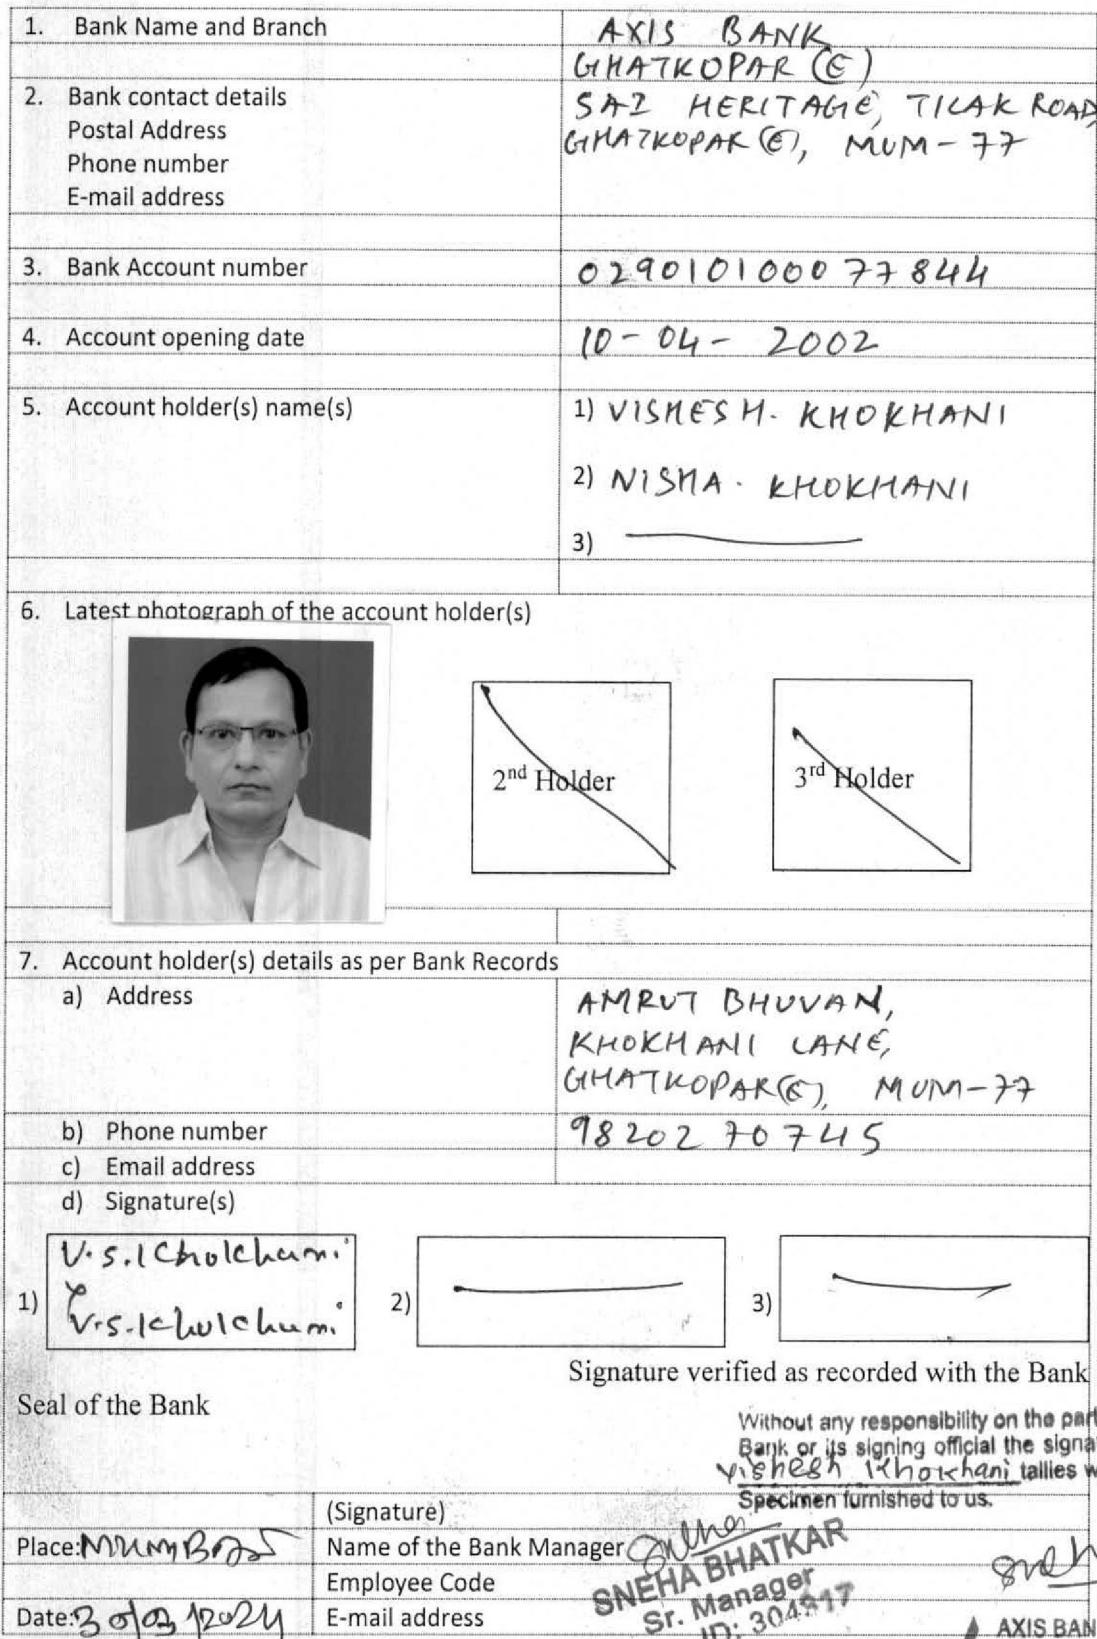 1. Bank Name and Branch AXIS BANK
GHATKOPAR (E)
2. Bank contact details SAI HERITAGE, TILAK ROAD,
Postal Address GHATKOPAR (E), MUM-77
Phone number
E-mail address
3. Bank Account number 029010100077844
4. Account opening date 10-04-2002
5. Account holder(s) name(s) 1) VISHESH. KHOKHANI
2) NISHA. KHOKHANI
3)
6. Latest photograph of the account holder(s)
2nd Holder 3rd Holder
7. Account holder(s) details as per Bank Records
a) Address AMRUT BHUVAN,
KHOKHANI LANE,
GHATKOPAR(E), MUM-77
b) Phone number 9820270745
c) Email address
d) Signature(s)
V.S.Khokhani
1) V.S.Khokhani 2) 3)
Signature verified as recorded with the Bank
Seal of the Bank
Without any responsibility on the part
Bank or its signing official the signa
Vishesh Khokhani tallies w
Specimen furnished to us.
(Signature)
Place: Name of the Bank Manager
SNEHA BHATKAR
Employee Code
Sr. Manager
Date: 30/03/2024 E-mail address
ID:
AXIS BAN